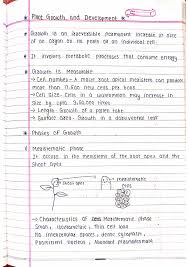 Plant Growth and Development
Growth is an irreversible permanent increase in size
of an organ or its parts or an individual cell.
It involves metabolic processes that consume energy.
Growth is Measurable
→ Cell number - A maize root apical meristem can produce
more than 17,500 new cells per hour
→ Cell Size - Cells in a watermelon may increase in
size by upto 3,50,000 times
→ Length - Growth of a pollen tube
→ Surface area - Growth in a dorsiventral leaf
Phases of Growth
Meristematic phase
It occurs in the meristems of the root apex and the
shoot apex
Shoot apex
Meristematic
cells
→ Characteristics of Meristematic phase
Small, Isodiametric, Thin cell wall
No intercellular spaces, dense cytoplasm,
Prominent nucleus, Abundant plasmodesmata